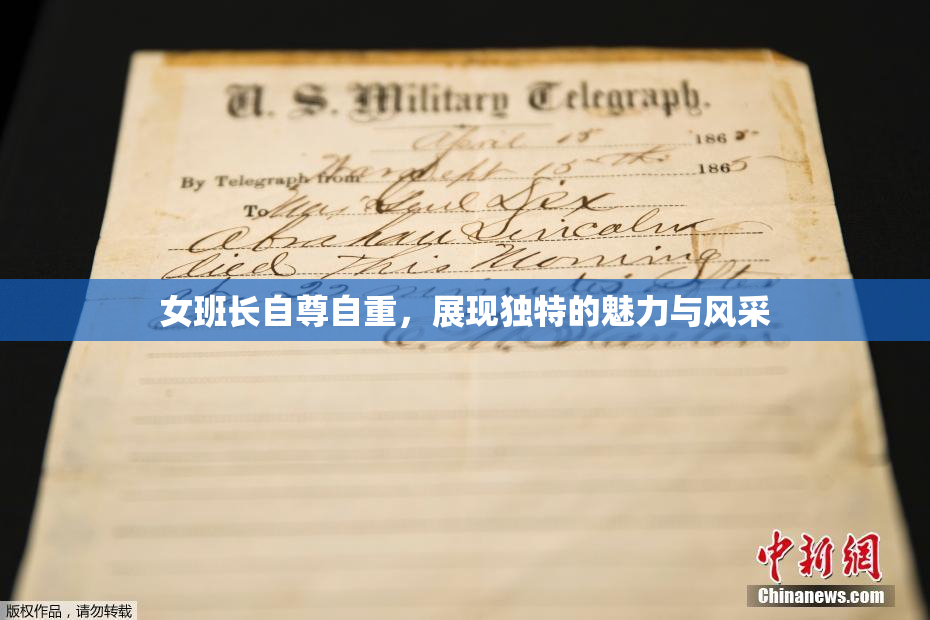 U. S. Military Telegraph.
April 15 1865
By Telegraph from War Dept 15th 1865
To Maj Genl Dix
Abraham Lincoln
died This Morning
at 22 minutes after
女班长自尊自重，展现独特的魅力与风采
E. M. Stanton
中新网
Chinanews.com
版权作品，请勿转载